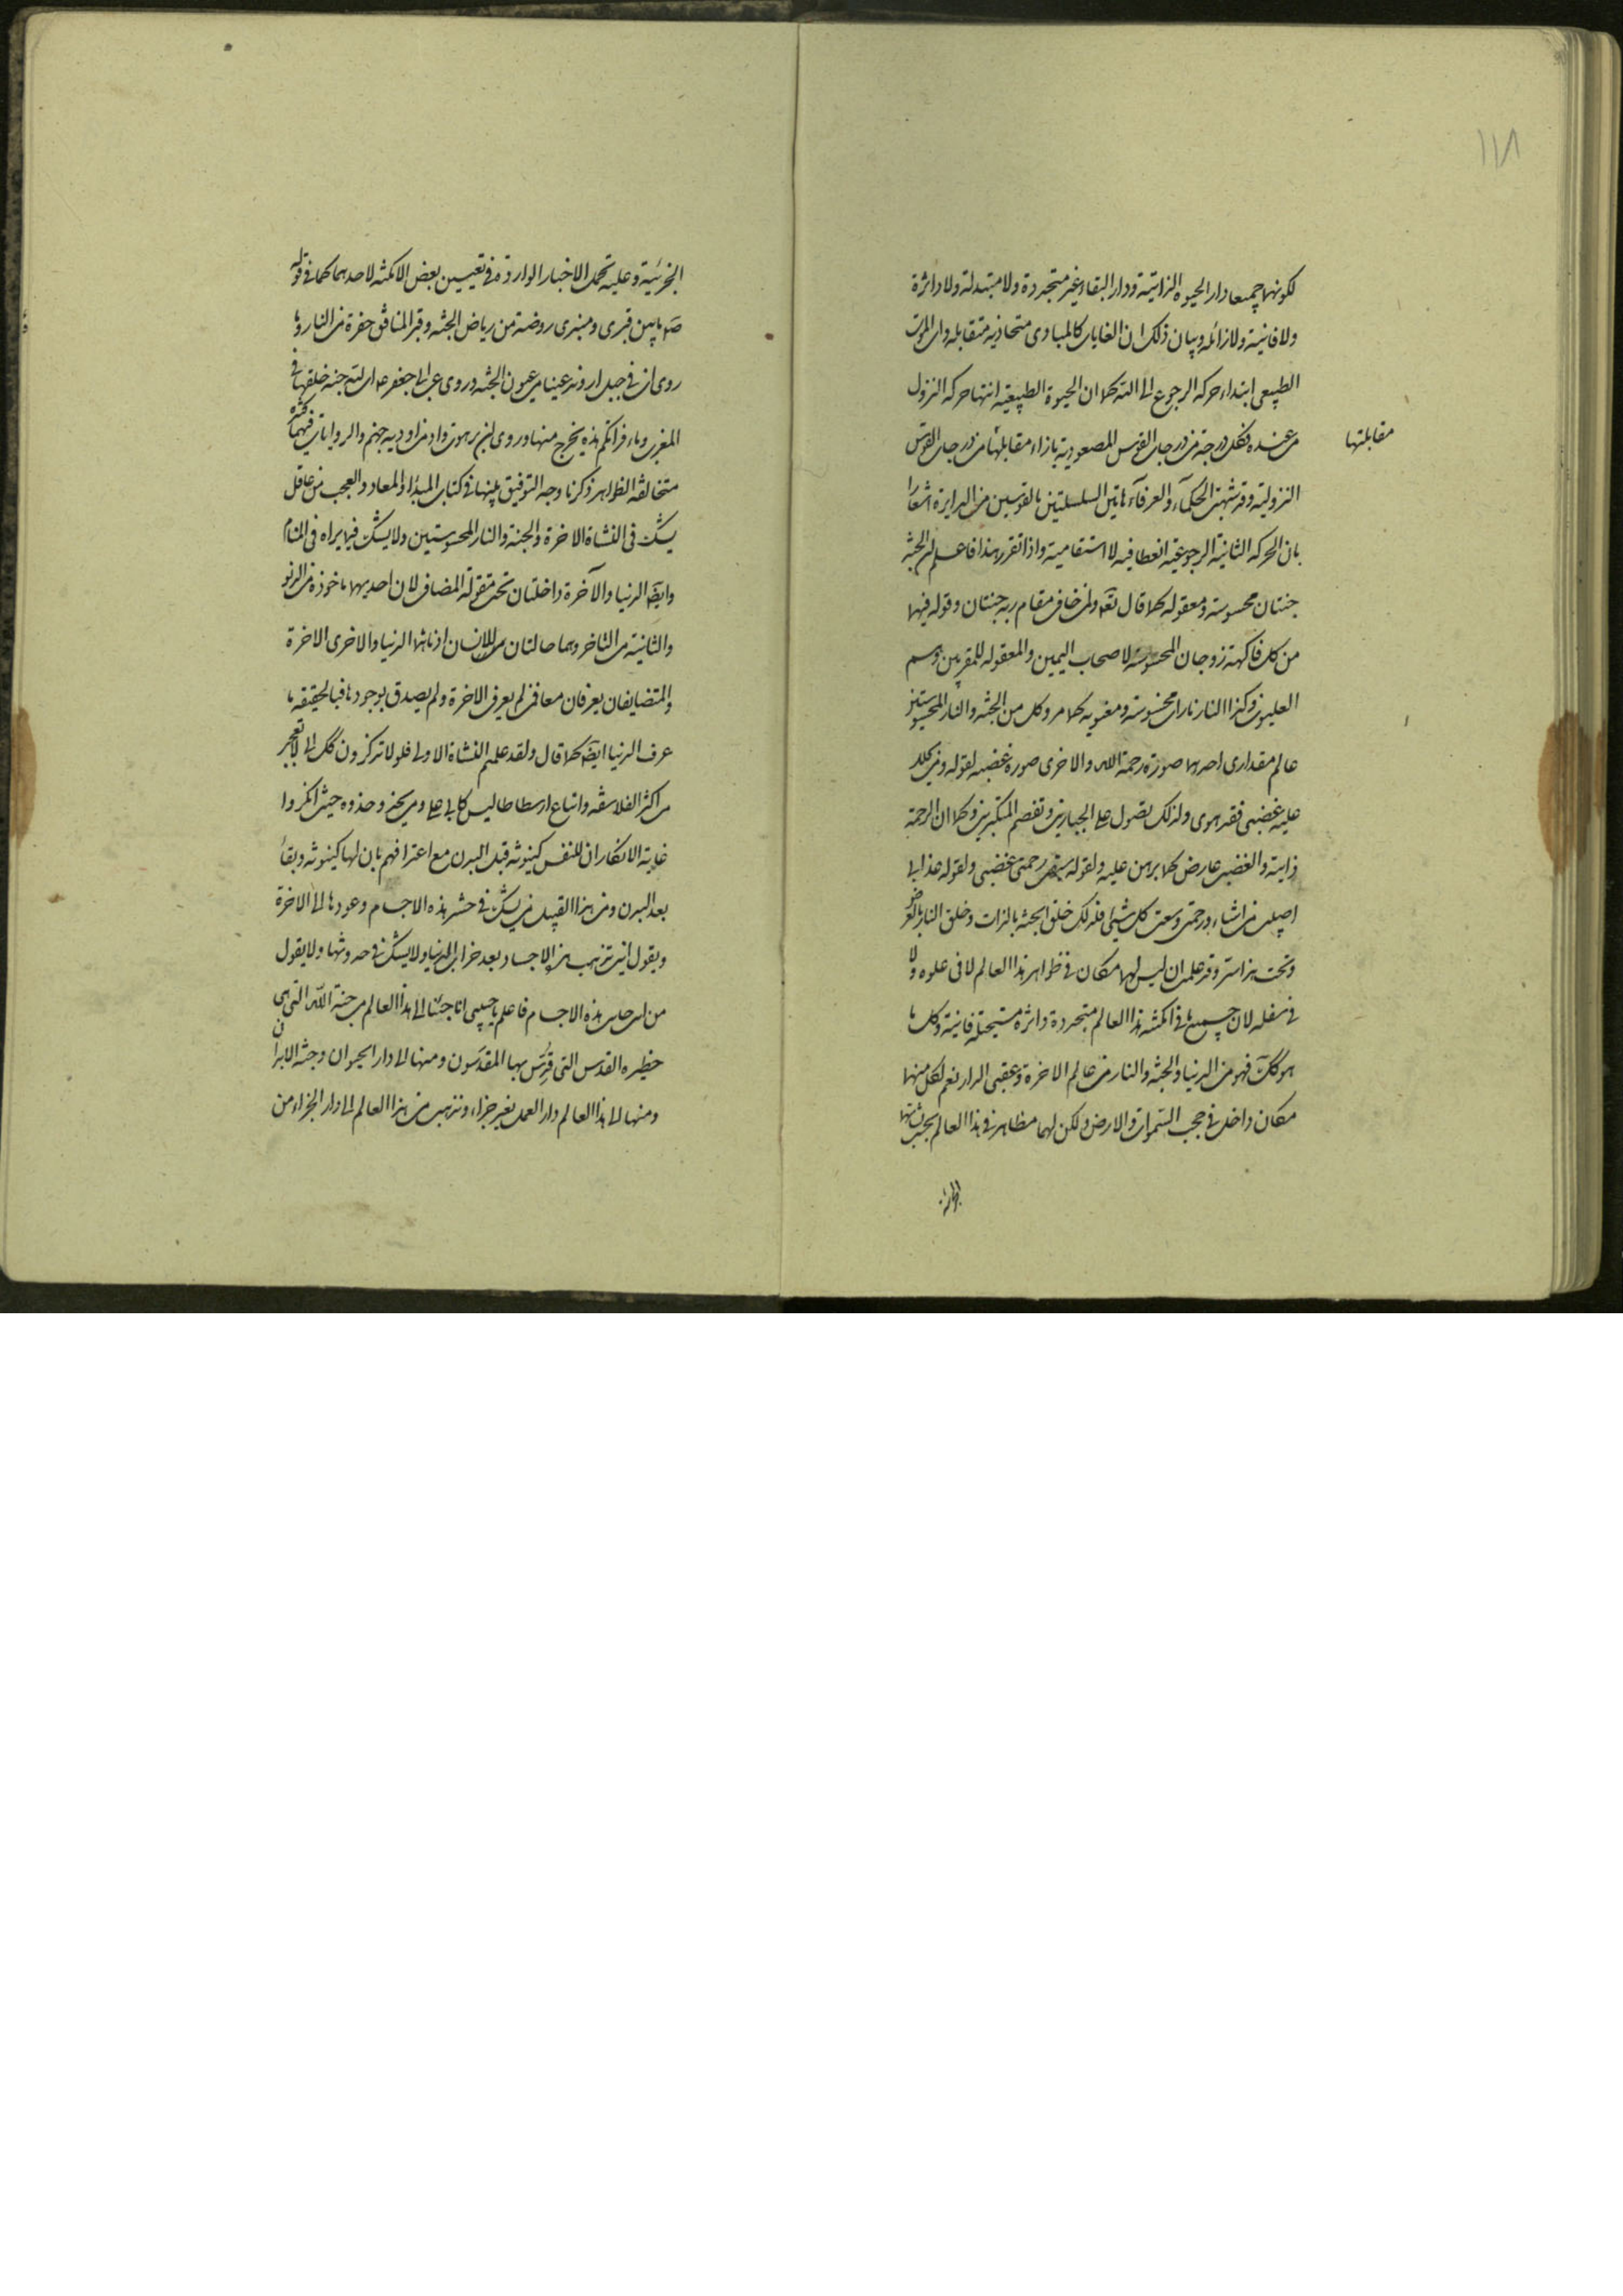 ١١٨
لكونهما جميعا دار الحيوة الذاتية ودار البقاء غير متجددة ولا متبدلة ولا داثرة
ولا فانية ولا زائلة وبيان ذلك ان الغايات كالمبادى متحاذية متقابلة وان الموت
الطبيعى ابتداء حركة الرجوع الى الله كما ان الحيوة الطبيعية انتهاء حركة النزول
من عنده فكل درجة من درجات القوس الصعودية بازاء مقابلتها من درجات القوس
مقابلتها
النزولية وقد شبهت الحكماء والعرفاء هاتين السلسلتين بالقوسين من الدايرة اشعارا
بان الحركة الثانية الرجوعية انعطافية لا استقامية واذا تقرر هذا فاعلم ان الجنة
جنتان محسوسة ومعقولة كما قال تعه ولمن خاف مقام ربه جنتان وقوله فيهما
من كل فاكهة زوجان المحسوسة لاصحاب اليمين والمعقولة للمقربين وهم
العليون وكذا النار ناران محسوسة ومعنوية كما مر وكل من الجنة والنار المحسوستين
عالم مقدارى احديهما صورة رحمة الله والاخرى صورة غضبه لقوله ومن يحلل
عليه غضبى فقد هوى ولذلك يصول على الجبارين وتقصم المتكبرين وكما ان الرحمة
ذاتية والغضب عارض كما برهن عليه ولقوله سبقت رحمتى غضبى ولقوله عذابى
اصيب به من اشاء ورحمتى وسعت كل شيئ فلذلك خلق الجنة بالذات وخلق النار بالعرض
وتحت هذا سر وقد علمت ان ليس لهما مكان فى ظواهر هذا العالم لا فى علوه ولا
فى سفله لان جميع ما فى امكنة هذا العالم متجددة داثرة مستحيلة فانية وكل ما
هو كك فهو من الدنيا والجنة والنار من عالم الاخرة وعقبى الدار نعم لكل منهما
مكان داخل فى حجب السموات والارض ولكن لهما مظاهر فى هذا العالم بحسب نشأتها
الجزئية
الجزئية وعليه تحمل الاخبار الواردة فى تعيين بعض الامكنة لاحدهما كما فى قوله
صه ما بين قبرى ومنبرى روضة من رياض الجنة وقبر المنافق حفرة من النار وما
روى ان فى جبل اروند عينا من عيون الجنة وروى عن ابى جعفر ع ان لله جنة خلقها فى
المغرب وماء فراتكم هذه يخرج منها وروى ان برهوت واد من اودية جهنم والروايات فيهما كثيرة
متخالفة الظواهر ذكرنا وجه التوفيق بينها فى كتاب المبدأ والمعاد والعجب من عاقل
يشك فى النشاة الاخرة والجنة والنار المحسوستين ولا يشك فيما يراه فى المنام
وايضا الدنيا والآخرة داخلتان تحت مقولة المضاف لان احديهما ماخوذة من الدنو
والثانية من التاخر وهما حالتان للانسان ادناهما الدنيا والاخرى الاخرة
والمتضايفان يعرفان معا فمن لم يعرف الاخرة ولم يصدق بوجودها فبالحقيقة ما
عرف الدنيا ايضا كما قال ولقد علمتم النشاة الاولى فلولا تذكرون لكن التعجب
من اكثر الفلاسفة واتباع ارسطاطاليس كابى على ومن يحذو حذوه حيث انكروا
غاية الانكار ان للنفس كينونة قبل البدن مع اعترافهم بان لها كينونة وبقاء
بعد البدن ومن هذا القبيل من يشك فى حشر هذه الاجسام وعودها الى الاخرة
ويقول اين تذهب هذه الاجساد بعد خراب الدنيا ولا يشك فى حدوثها ولا يقول
من اين جاءت هذه الاجسام فاعلم يا حبيبى انا جئنا الى هذا العالم من جنة الله التى هى
حظيرة القدس التى قدس بها المقدسون ومنها الى دار الحيوان وجنة الابدان
ومنها الى هذا العالم دار العمل بغير جزاء ونذهب من هذا العالم الى دار الجزاء من